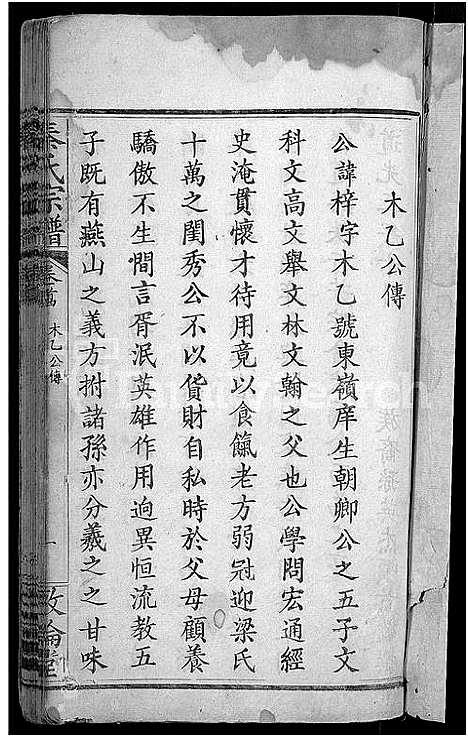 木乙公傳
公諱梓字木乙號東嶺庠生朝卿公之五子文
科文高文舉文林文翰之父也公學問宏通經
史淹貫懷才待用竟以食餼老方弱冠迎梁氏
十萬之閨秀公不以貨財自私時於父母顧養
驕傲不生間言胥泯英雄作用逈異恒流教五
子既有燕山之義方拊諸孫亦分羲之之甘味
秦氏宗譜
木乙公傳
一
敦倫堂